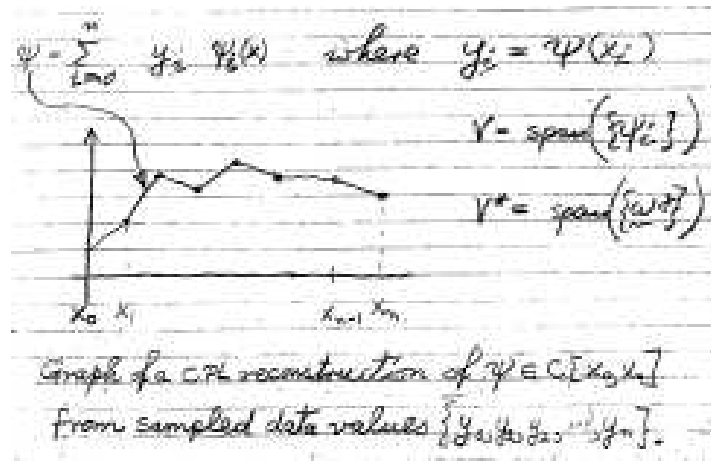 ψ = Σ_{i=0}^{n} y_i ψ_i(x) where y_i = ψ(x_i)
V = span({ψ_i})
V* = span({ω^j})
x_0 x_1 x_{n-1} x_n
Graph of a CPL reconstruction of ψ ∈ C[x_0, x_n]
from sampled data values {y_0, y_1, y_2, ..., y_n}.